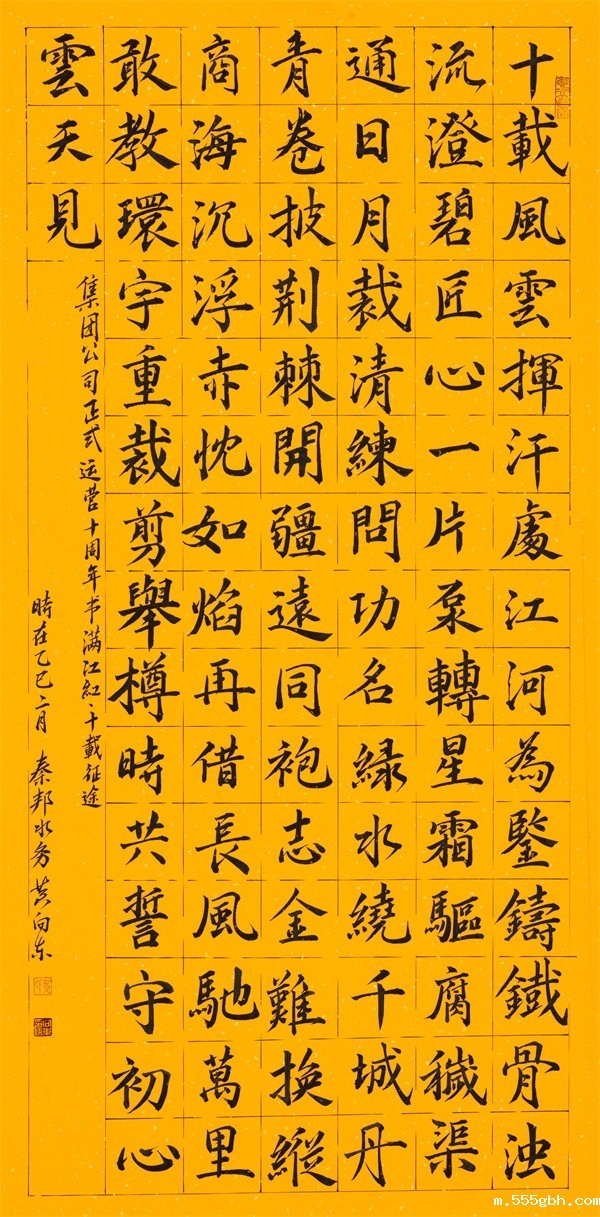 十載風雲揮汗處江河為鑒鑄鐵骨浊
流澄碧匠心一片泵轉星霜驅腐穢渠
通日月裁清練問功名緑水繞千城丹
青卷披荆棘開疆遠同袍志金難換縱
商海沉浮赤忱如焰再借長風馳萬里
敢教環宇重裁剪舉樽時共誓守初心
雲天見
集团公司正式运营十周年书满江紅·十載征途
時在乙巳二月 秦邦水务 黄向东
m.555gbh.com